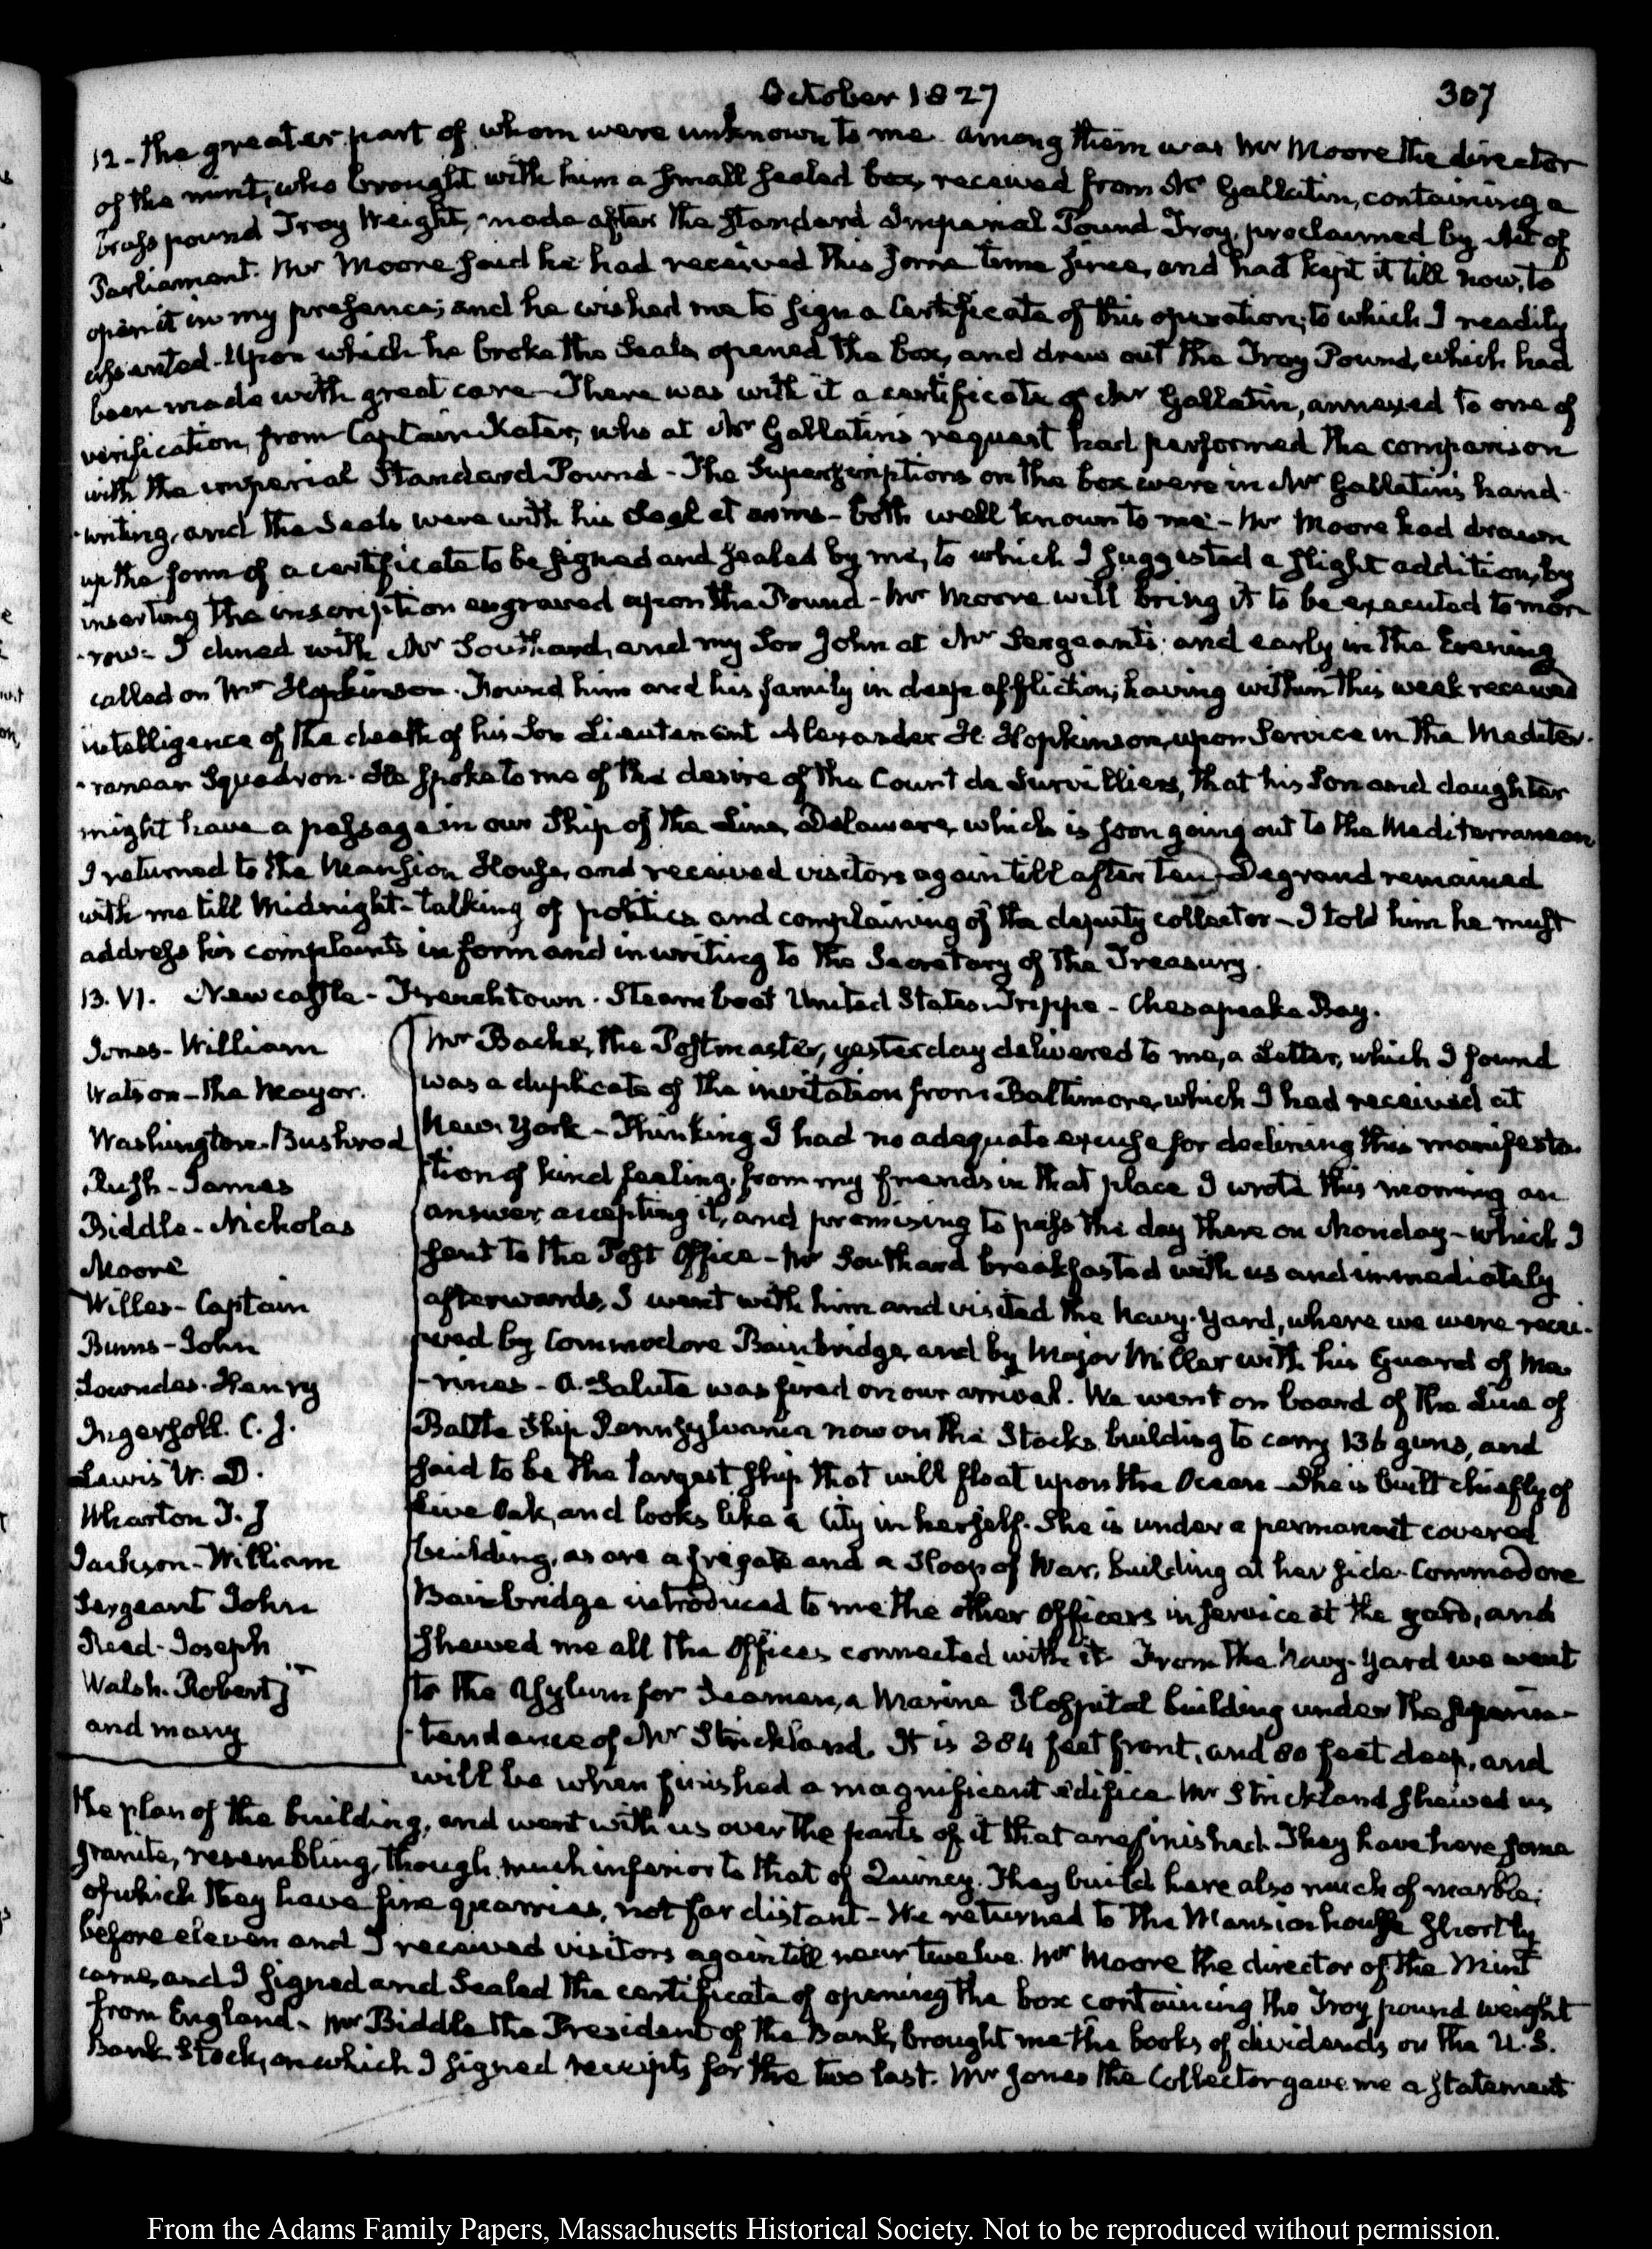 October 1827
307
12 - the greater part of whom were unknown to me. Among them was Mr Moore the director
of the mint, who brought with him a small sealed box, received from Mr Gallatin, containing a
brass pound Troy Weight, made after the standard Imperial Pound Troy, proclaimed by Act of
Parliament. Mr Moore said he had received this some time since, and had kept it till now, to
open it in my presence; and he wished me to sign a Certificate of this operation; to which I readily
assented. Upon which he broke the Seals, opened the box, and drew out the Troy Pound, which had
been made with great care - There was with it a certificate of Mr Gallatin, annexed to one of
verification, from Captain Kater, who at Mr Gallatin's request had performed the comparison
with the imperial Standard Pound - The Superscriptions on the box were in Mr Gallatin's hand-
-writing, and the Seals were with his Seal at arms - both well known to me - Mr Moore had drawn
up the form of a certificate to be signed and sealed by me, to which I suggested a slight addition, by
inserting the inscription engraved upon the Pound - Mr Moore will bring it to be executed to mor-
-row - I dined with Mr Southard, and my Son John at Mr Sergeant's; and early in the Evening
called on Mr Hopkinson. Found him and his family in deep affliction; having within this week received
intelligence of the death of his Son Lieutenant Alexander H. Hopkinson, upon Service in the Mediter-
-ranean Squadron. He spoke to me of the desire of the Count de Survilliers, that his Son and daughter
might have a passage in our Ship of the Line, Delaware, which is soon going out to the Mediterranean
I returned to the Mansion House, and received visitors again till after ten - Degrand remained
with me till Midnight - talking of politics and complaining of the deputy collector - I told him he must
address his complaints in form and in writing to the Secretary of the Treasury.
13. VI. Newcastle - Frenchtown. Steam boat United States. Trippe - Chesapeake Bay.
Jones - William
Watson - the Mayor.
Washington - Bushrod
Rush - James
Biddle - Nicholas
Moore
Willes - Captain
Burns - John
Lowndes - Henry
Ingersoll. C. J.
Lewis W. D.
Wharton T. J
Jackson - William
Sergeant John
Read - Joseph
Walsh. Robert jr
and many
Mr Bache, the Postmaster, yesterday delivered to me, a Letter, which I found
was a duplicate of the invitation from Baltimore, which I had received at
New-York - Thinking I had no adequate excuse for declining this manifesta-
tion of kind feeling, from my friends in that place I wrote this morning an
answer, accepting it, and promising to pass the day there on Monday - which I
sent to the Post Office - Mr Southard breakfasted with us and immediately
afterwards, I went with him and visited the Navy-Yard, where we were recei-
-ved by Commodore Bainbridge, and by Major Miller with his Guard of Ma-
-rines - A Salute was fired on our arrival. We went on board of the Line of
Battle Ship Pennsylvania now on the Stocks, building to carry 136 guns, and
said to be the largest ship that will float upon the Ocean - She is built chiefly of
Live Oak, and looks like a City in herself. She is under a permanent covered
building, as are a frigate and a Sloop of War, building at her side. Commodore
Bainbridge introduced to me the other Officers in service at the yard, and
shewed me all the Offices connected with it. From the Navy-Yard we went
to the Asylum for Seamen, a Marine Hospital building under the Superin-
-tendance of Mr Strickland. It is 384 feet front, and 80 feet deep, and
will be when finished a magnificent edifice. Mr Strickland shewed us
the plan of the building, and went with us over the parts of it that are finished. They have here some
granite, resembling, though much inferior to that of Quincy. They build here also much of marble;
of which they have fine quarries, not far distant - We returned to the Mansion house shortly
before eleven and I received visitors again till near twelve. Mr Moore the director of the Mint
came, and I signed and Sealed the certificate of opening the box containing the Troy pound weight
from England. Mr Biddle the President of the Bank, brought me the books of dividends on the U.S.
Bank Stock, on which I signed receipts for the two last. Mr Jones the Collector gave me a statement
From the Adams Family Papers, Massachusetts Historical Society. Not to be reproduced without permission.